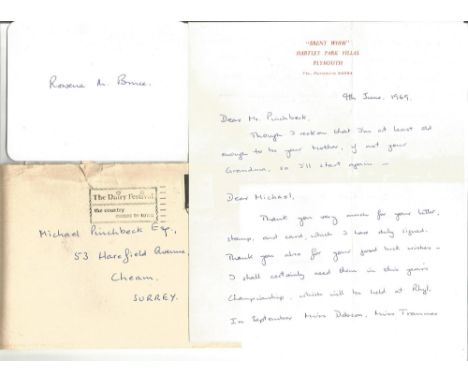 Rowena M. Bruce.
"BRENT WOOD"
HARTLEY PARK VILLAS
PLYMOUTH
9th June, 1969.
Dear Mr. Pinchbeck,
Though I reckon that I'm at least old
enough to be your mother, if not your
Grandma, so I'll start again —
Dear Michael,
Thank you very much for your letter,
stamp, and card, which I have duly signed.
Thank you also for your good luck wishes -
I shall certainly need them in this year's
Championship, which will be held at Rhyl.
In September Miss Dobson, Miss Tranmer
The Dairy Festival
the country
comes to town
Michael Pinchbeck Esq.,
53 Harefield Avenue,
Cheam,
SURREY.